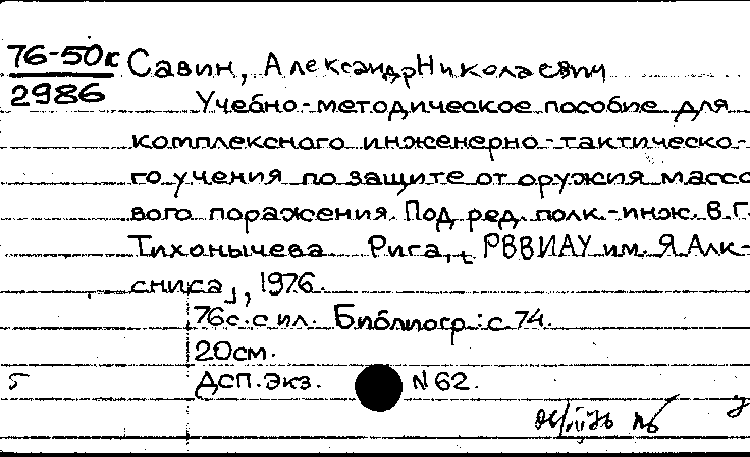 76-50к Савин, Александр Николаевич
2986
Учебно-методическое пособие для
комплексного инженерно-тактическо-
го учения по защите от оружия массо
вого поражения. Под ред. полк.-инж. В.Г.
Тихонычева Рига, [РВВИАУ им. Я. Алк-
сниса], 1976.
76с. с ил. Библиогр.: с 74.
20см.
5 ДСП. Экз. N 62.